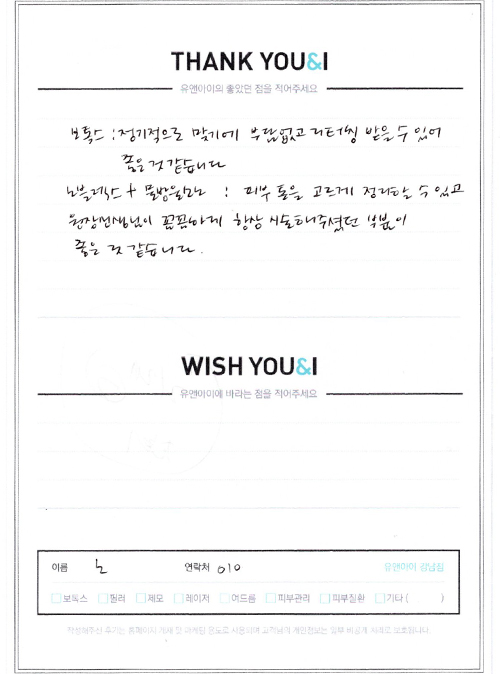 THANK YOU&I
유앤아이의 좋았던 점을 적어주세요
보톡스 : 정기적으로 맞기에 부담없고 리터칭 받을 수 있어
좋은 것 같습니다
+ 물방울 : 피부 톤을 고르게 정리할 수 있고
원장선생님이 꼼꼼하게 항상 시술해주셨던 부분이
좋은 것 같습니다.
WISH YOU&I
유앤아이에 바라는 점을 적어주세요
이름 노 연락처 010 유앤아이 강남점
보톡스 필러 제모 레이저 여드름 피부관리 피부질환 기타 ( )
작성해주신 후기는 홈페이지 게재 및 마케팅 용도로 사용되며 고객님의 개인정보는 일부 비공개 처리로 보호됩니다.